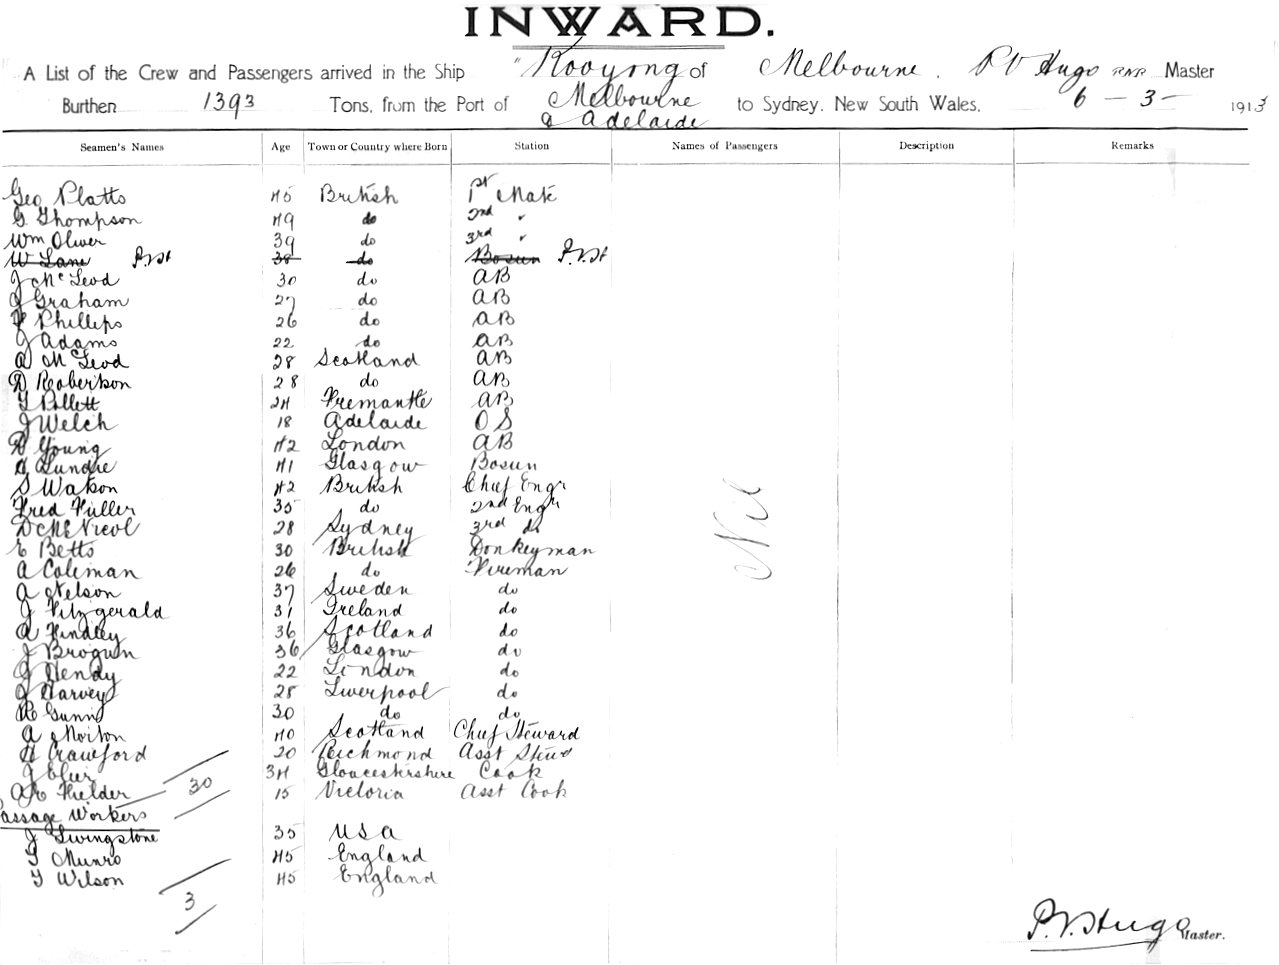 INWARD.
A List of the Crew and Passengers arrived in the Ship "Kooyong of Melbourne. P V Hugo RNR Master
Burthen 1393 Tons, from the Port of Melbourne & Adelaide to Sydney, New South Wales, 6 - 3 - 1913
Seamen's Names Age Town or Country where Born Station Names of Passengers Description Remarks
Geo Platts 45 British 1st Mate
G Thompson 49 do 2nd "
Wm Oliver 39 do 3rd "
W Lane P.V.H 38 do Bosun P.V.H
J McLeod 30 do AB
J Graham 27 do AB
F Phillips 26 do AB
J Adams 22 do AB
A McLeod 28 Scotland AB
D Robertson 28 do AB
T Pollett 24 Fremantle AB
J Welch 18 Adelaide OS
H Young 42 London AB
A Lundie 41 Glasgow Bosun
S Watson 42 British Chief Engr
Fred Fuller 35 do 2nd Engr
D McNicol 28 Sydney 3rd do
E Betts 30 British Donkeyman
A Coleman 26 do Fireman
A Nelson 37 Sweden do
J Fitzgerald 31 Ireland do
A Findley 36 Scotland do
J Brogun 36 Glasgow do
J Hendy 22 London do
J Harvey 28 Liverpool do
R Gunn 30 do do
A Morton 40 Scotland Chief Steward
H Crawford 20 Richmond Asst Stewd
J 34 Gloucestershire Cook
A E Fielder 15 Victoria Asst Cook
30
Passage Workers
J Livingstone 35 USA
T Munro 45 England
T Wilson 45 England
3
Nil
P.V. Hugo Master.